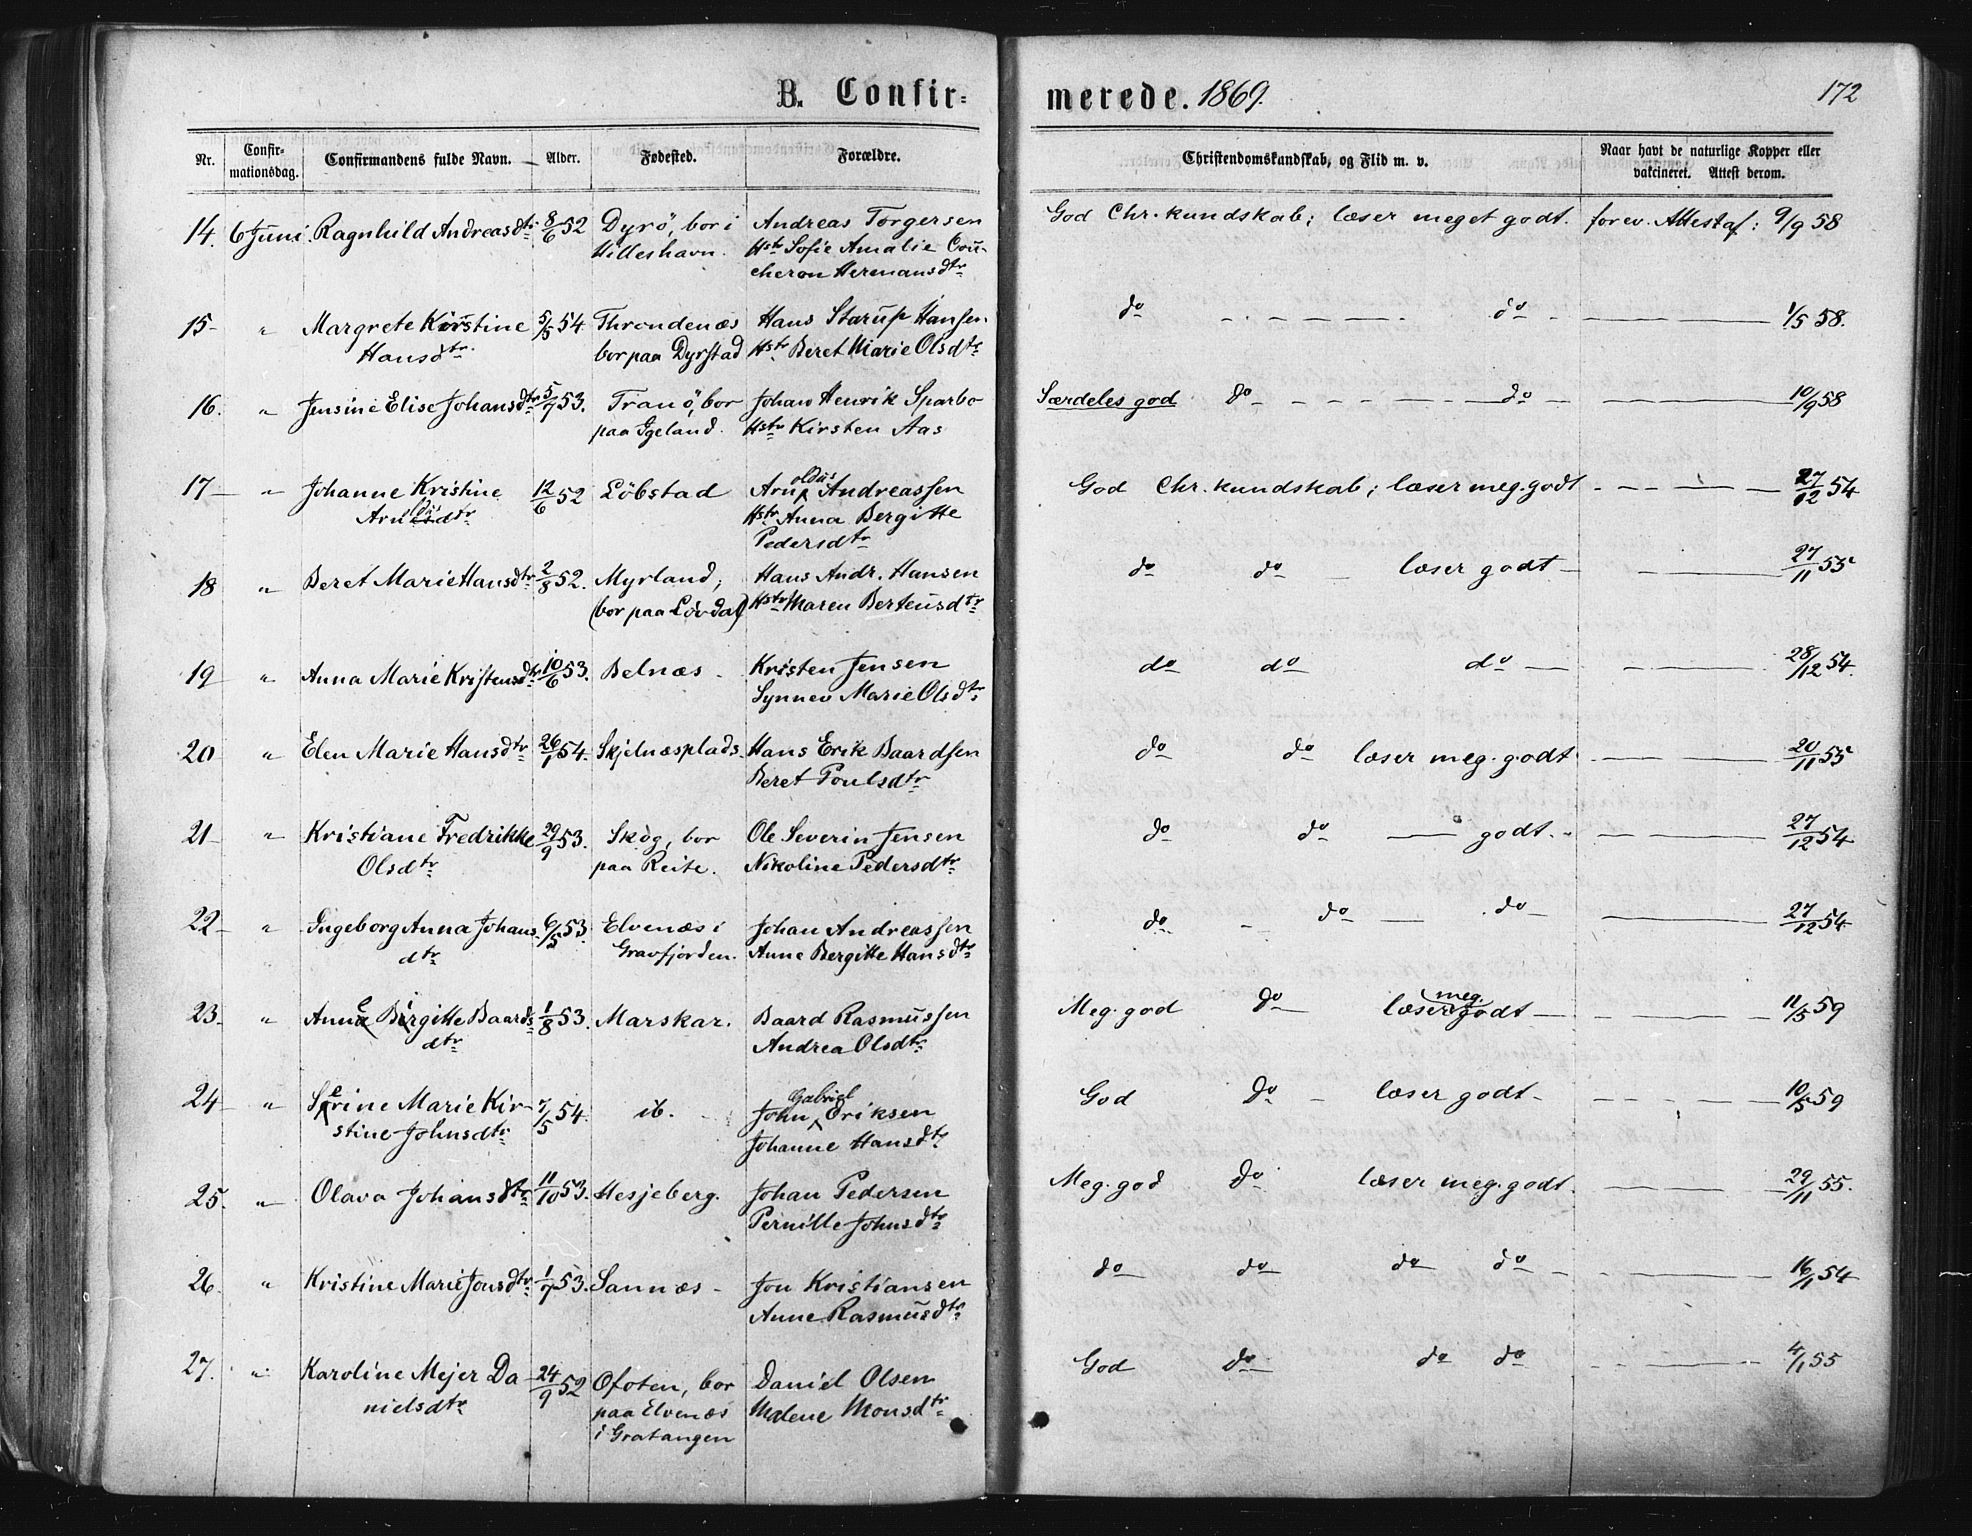 B. Confir-
merede. 1869.
172
Nr. Confir-mationsdag. Confirmandens fulde Navn. Alder. Fødested. Forældre. Christendomskundskab, og Flid m. v. Naar havt de naturlige Kopper eller vakcineret. Attest derom.
14. 6 Juni. Ragnhild Andreasdtr 8/6 52 Dyrö, bor i Andreas Torgersen God Chr. kundskab; læser meget godt. forev. Attest af: 9/9 58
Hilleshavn. Hstr Sofie Amalie Cou-
cheron Hermansdtr
15 " Margrete Kirstine 5/5 54 Throndenæs Hans Starup Hansen do do 1/5 58.
Hansdtr. bor paa Dyrstad Hstr Beret Marie Olsdtr
16. " Jensine Elise Johansdtr 5/7 53. Tranö, bor Johan Henrik Sparbo Særdeles god do do 10/9 58
paa Igeland. Hstr Kirsten Aas
17 " Johanne Kristine 12/6 52 Löbstad Arnoldus Andreassen God Chr. kundskab; læser meg. godt 27/12 54
Arnoldusdtr Hstr Anna Bergitte
Pedersdtr
18 " Beret Marie Hansdtr 2/8 52. Myrland, Hans Andr. Hansen do do læser godt 27/11 55
(bor paa Lövdal) Hstr Maren Berteusdtr
19 " Anna Marie Kristensdtr 10/6 53. Belnæs Kristen Jensen do do do 28/12 54.
Synnev Marie Olsdtr
20 " Elen Marie Hansdtr 26/1 54. Skjelnæsplads. Hans Erik Baardsen do do læser meg. godt 20/11 55
Beret Poulsdtr
21 " Kristiane Fredrikke 29/9 53. Skög, bor Ole Severin Jensen do do godt. 27/12 54
Olsdtr paa Reite. Nikoline Pedersdtr
22 " Ingeborg Anna Johans- 6/5 53. Elvenæs i Johan Andreassen do do do 27/12 54
dtr Gravfjorden. Anne Bergitte Hansdtr
23. " Anne Birgitte Baards- 1/8 53. Marskar. Baard Rasmussen Meg. god do læser meg. godt 11/5 59
dtr Andrea Olsdtr
24 " Serine Marie Kir- 7/5 54. ib. John Gabriel Eriksen God do læser godt 10/5 59
stine Johnsdtr Johanne Hansdtr
25. " Olava Johansdtr 11/10 53. Hesjeberg. Johan Pedersen Meg. god do læser meg. godt. 29/11 55.
Pernille Johnsdtr
26. " Kristine Marie Jonsdtr 1/7 53. Sannæs Jon Kristiansen do do do do 16/1 54
Anne Rasmusdtr
27. " Karoline Mejer Da- 24/9 52 Ofoten, bor Daniel Olsen God do do do 4/1 55
nielsdtr paa Elvenæs Malene Monsdtr
i Gratangen